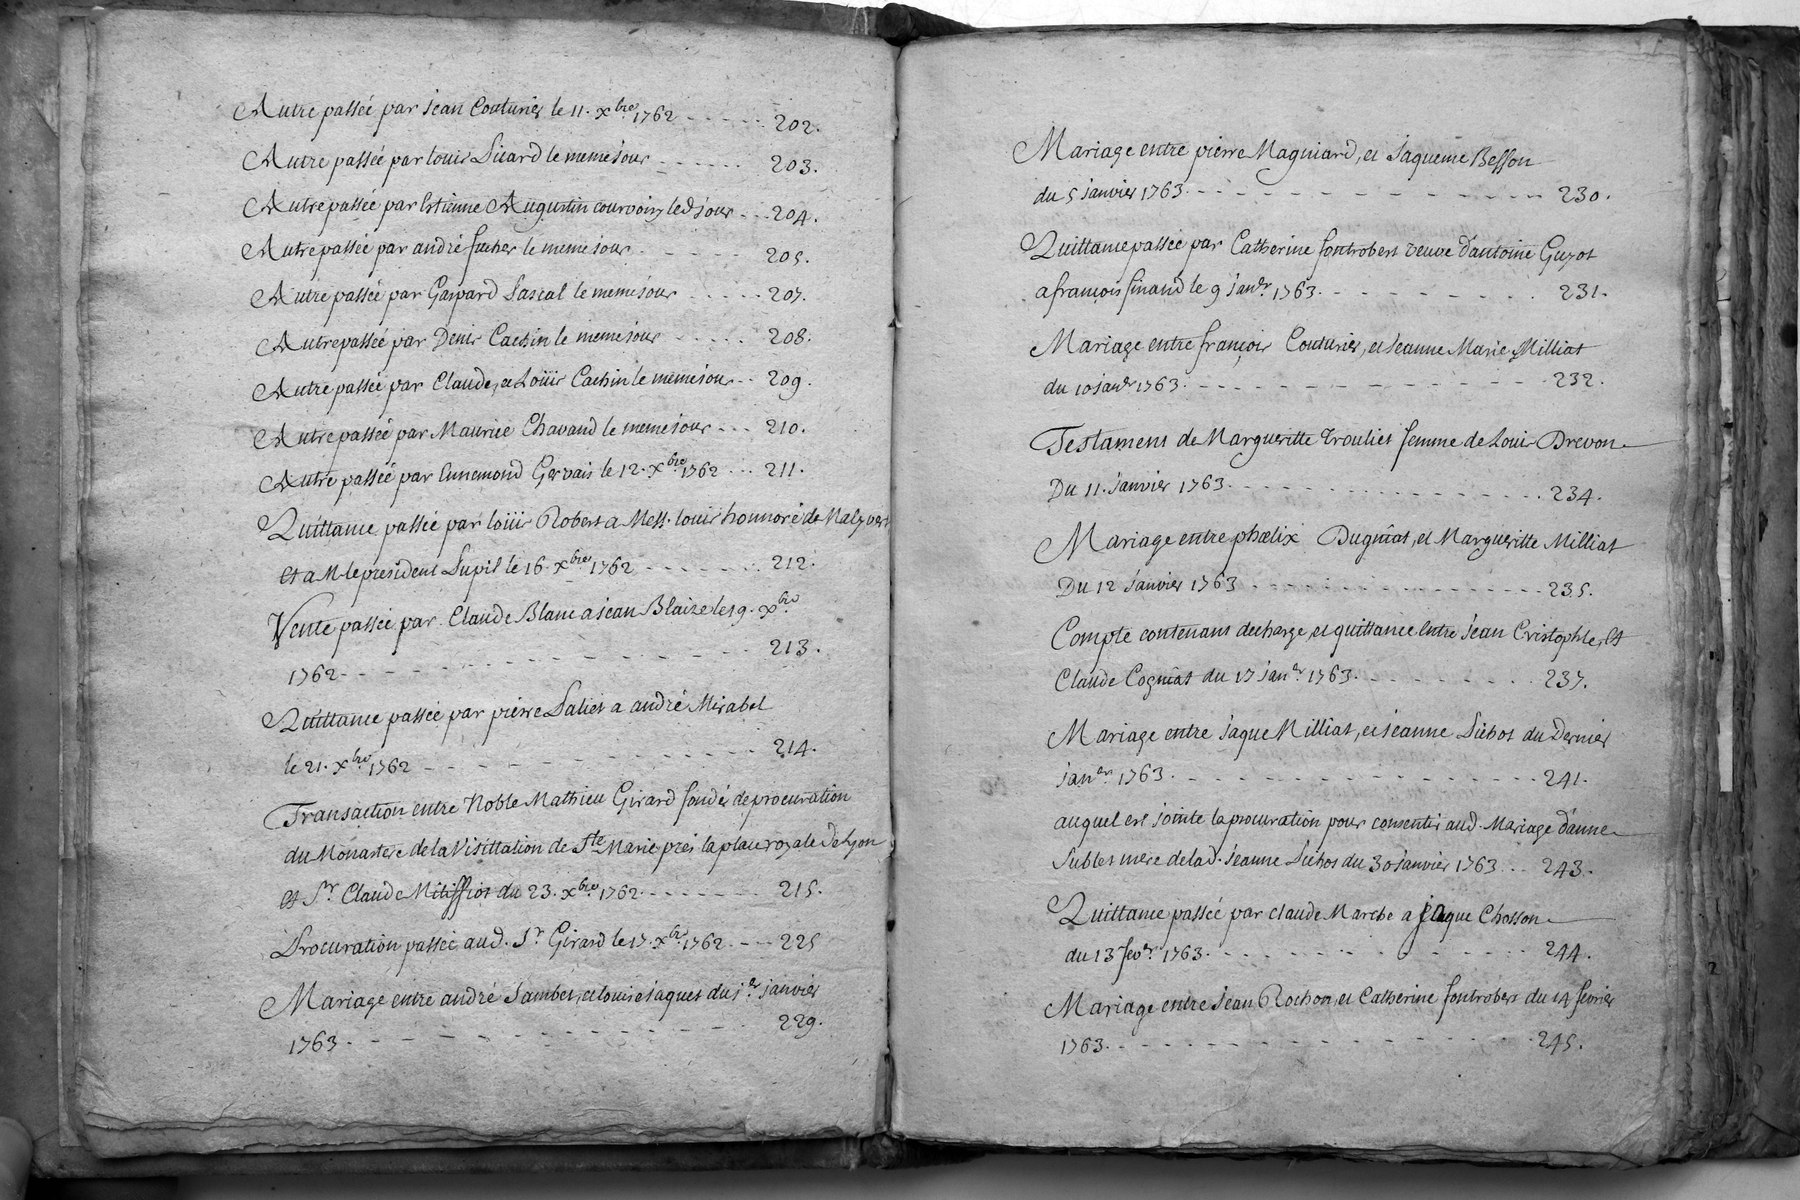 Autre passéé par jean Couturier le 11. xbre 1762 - - - - - 202.
Autre passéé par louis Sicard le meme jour - - - - - - 203.
Autre passéé par Estienne Augustin courvoisy led jour - - - 204.
Autre passéé par andré fucher le meme jour - - - - - - 205.
Autre passéé par Gaspard Pascal le meme jour - - - - - 207.
Autre passéé par Denis Cachin le meme jour - - - - - 208.
Autre passéé par Claude, et Loüis Cachin le meme jour - - 209.
Autre passéé par Maurice Chavand le meme jour - - - 210.
Autre passéé par Ennemond Gervais le 12. xbre 1762 - - - 211.
Quittance passéé par loüis Robert a Mess. louis honnoré de
et a M. le president Pupil le 16. xbre 1762 - - - - - - - 212.
Vente passéé par Claude Blanc a jean Blaize le 19. xbre
1762 - - - - - - - - - - - - - - - 213.
Quittance passéé par pierre a andré Mirabel
le 21. xbre 1762 - - - - - - - - - - - - - 214.
Transaction entre Noble Mathieu Girard fondé de procuration
du Monastere de la Visittation de Ste Marie prés la place royale de Lyon
et Sr. Claude du 23. xbre 1762 - - - - - - - 215.
Procuration passéé aud. Sr Girard le 17. xbre 1762. - - - 225
Mariage entre andré Jambet, et louise jaquet du 1er. janvier
1763 - - - - - - - - - - - - - - 229.
Mariage entre pierre Magniard, et Jaqueme Besson
du 5 janvier 1763 - - - - - - - - - - - - - - - 230.
Quittance passéé par Catherine fontrobert veuve d'antoine Guyot
a françois finand le 9 janer. 1763 - - - - - - - - - 231.
Mariage entre françois Couturier, et jeanne Marie Milliat
du 10 janer 1763 - - - - - - - - - - - - - - 232.
Testament de Margueritte Troulier femme de Louis Drevon
Du 11. janvier 1763 - - - - - - - - - - - - - 234.
Mariage entre phœlix Dugniat, et Margueritte Milliat
Du 12 janvier 1763 - - - - - - - - - - - - - 235.
Compte contenant decharge, et quittance entre jean Cristophle, et
Claude Cogniat du 17 janer. 1763 - - - - - - - - - 237.
Mariage entre jaque Milliat, et jeanne du Dernier
janer. 1763 - - - - - - - - - - - - - - - 241.
auquel est jointe la procuration pour consentir aud. Mariage d'anne
Sublet mere de lad. jeanne du 30 janvier 1763 - - - 243.
Quittance passéé par claude Marche a jaque Chosson
du 13 fever. 1763 - - - - - - - - - - - - - 244.
Mariage entre jean Rochon, et Catherine fontrobert du 14 fevrier
1763 - - - - - - - - - - - - - - - - 245.